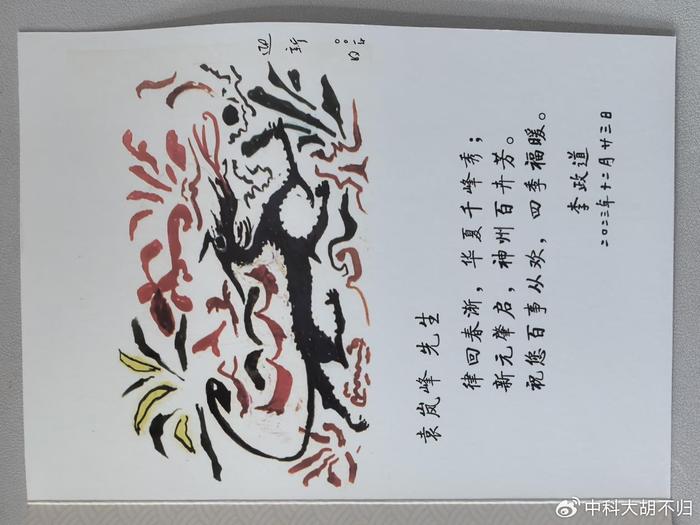 迎新
袁岚峰 先生
律回春渐，华夏千峰秀；
新元肇启，神州百卉芳。
祝您百事从欢，四季福暖。
李政道
二〇二三年十二月廿三日
中科大胡不归